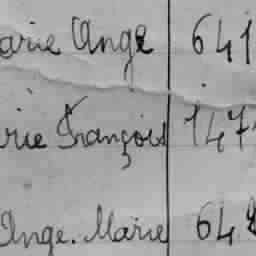 arie Ange 641
rie François 147
Ange. Marie 64